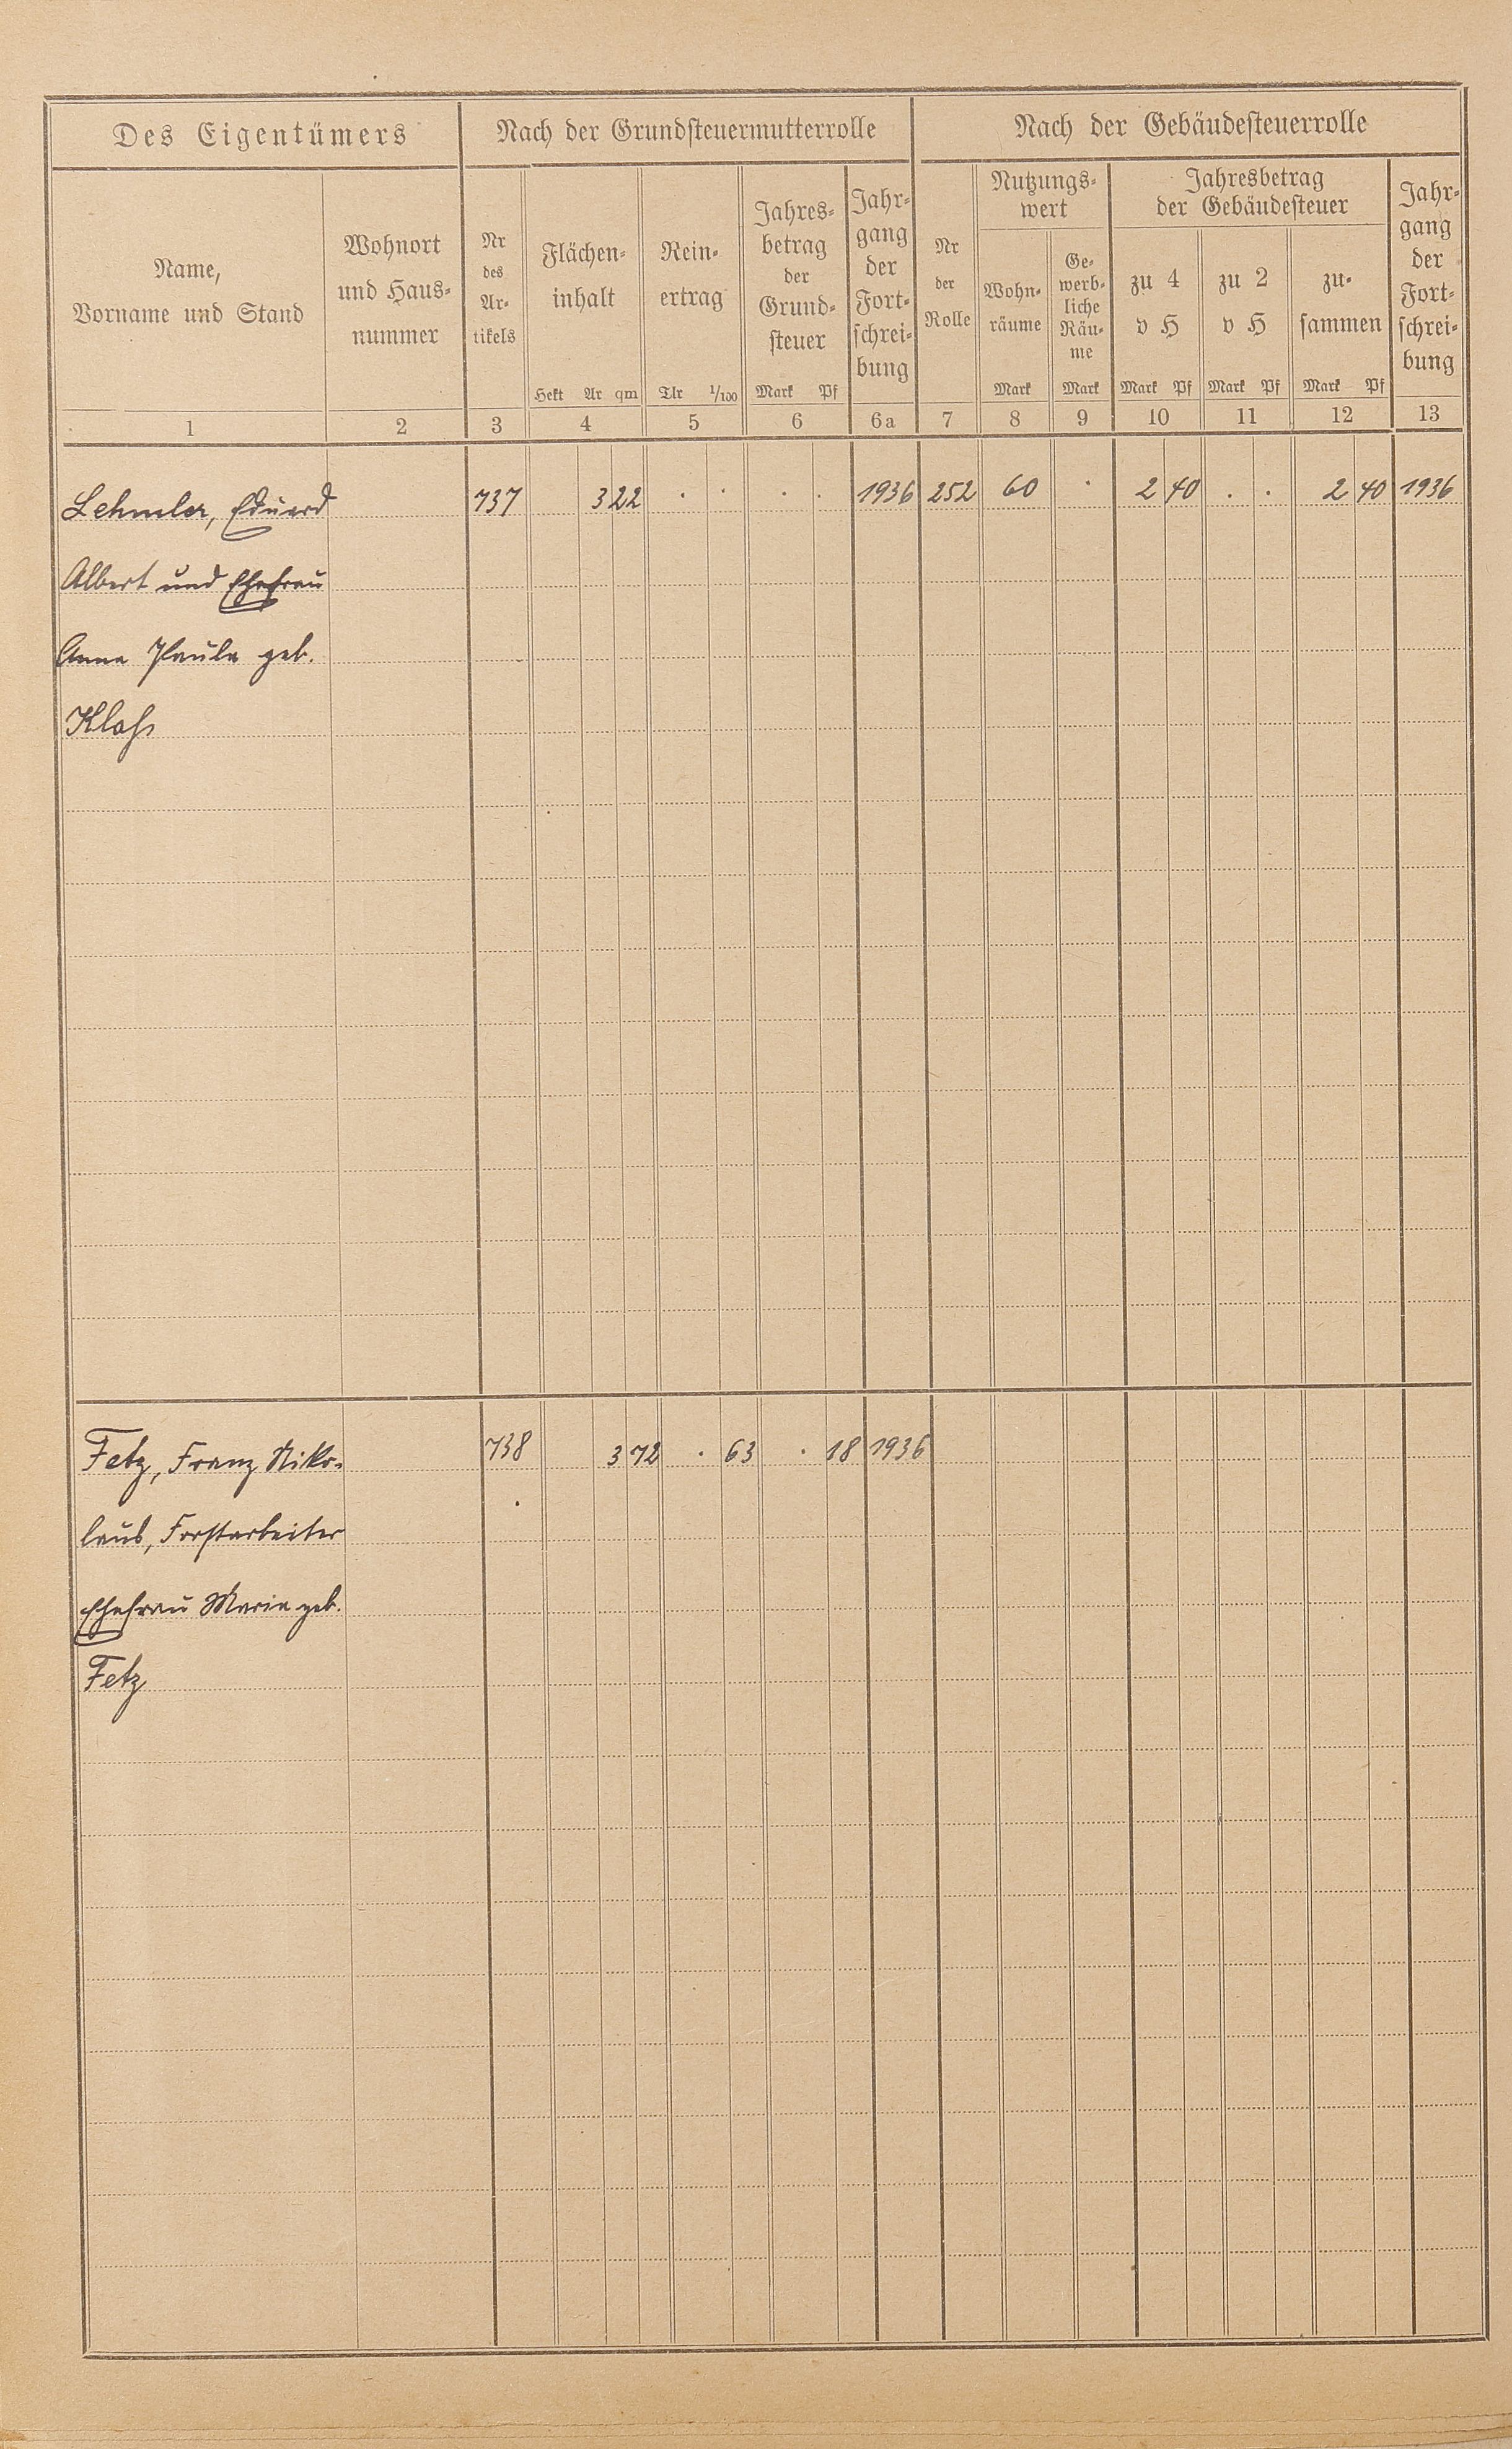 Des Eigentümers Nach der Grundsteuermutterrolle Nach der Gebäudesteuerrolle
Name,
Vorname und Stand
Wohnort
und Haus-
nummer
Nr
des
Ar-
tikels
Flächen-
inhalt
Hekt Ar qm
Rein-
ertrag
Tlr 1/100
Jahres-
betrag
der
Grund-
steuer
Mark Pf
Jahr-
gang
der
Fort-
schrei-
bung
Nr
der
Rolle
Nutzungs-
wert
Wohn-
räume
Mark
Ge-
werb-
liche
Räu-
me
Mark
Jahresbetrag
der Gebäudesteuer
zu 4
v H
Mark Pf
zu 2
v H
Mark Pf
zu-
sammen
Mark Pf
Jahr-
gang
der
Fort-
schrei-
bung
1 2 3 4 5 6 6a 7 8 9 10 11 12 13
Lehmler, Eduard 737 3 22 . . . . 1936 252 60 . 2 40 . . 2 40 1936
Albert und Ehefrau
Anna Paula geb.
Klaß
Fetz, Franz Niko- 738 3 72 . 63 . 18 1936
laus, Forstarbeiter
Ehefrau Maria geb.
Fetz